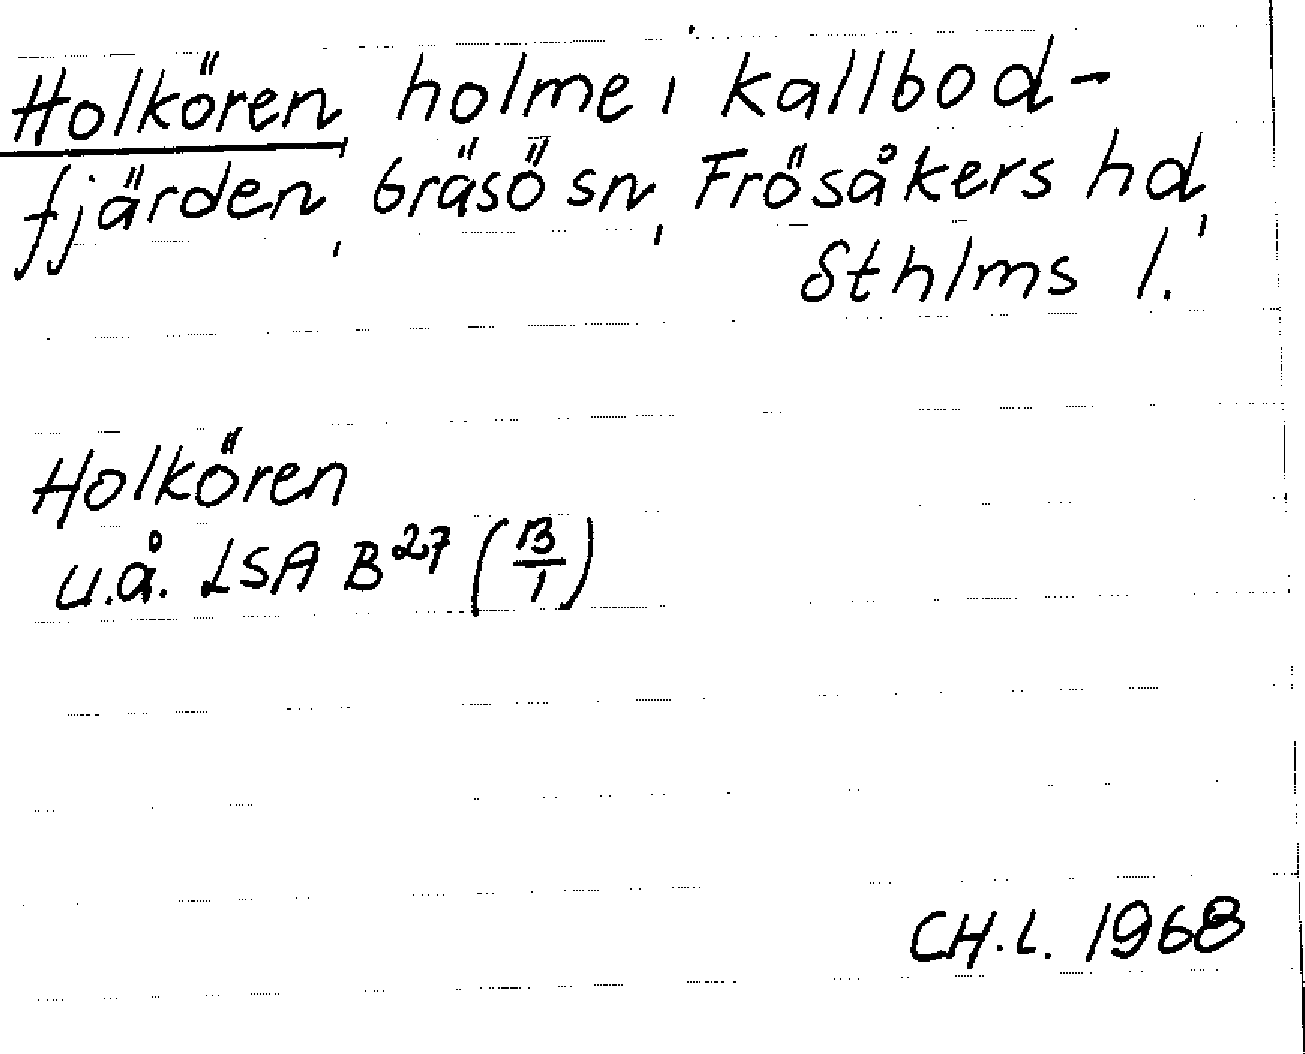 Holkören, holme i Kallbod-
fjärden, Gräsö sn, Frösåkers hd,
Sthlms l.
Holkören
u.å. LSA B²⁷ (B/1)
CH.L. 1968